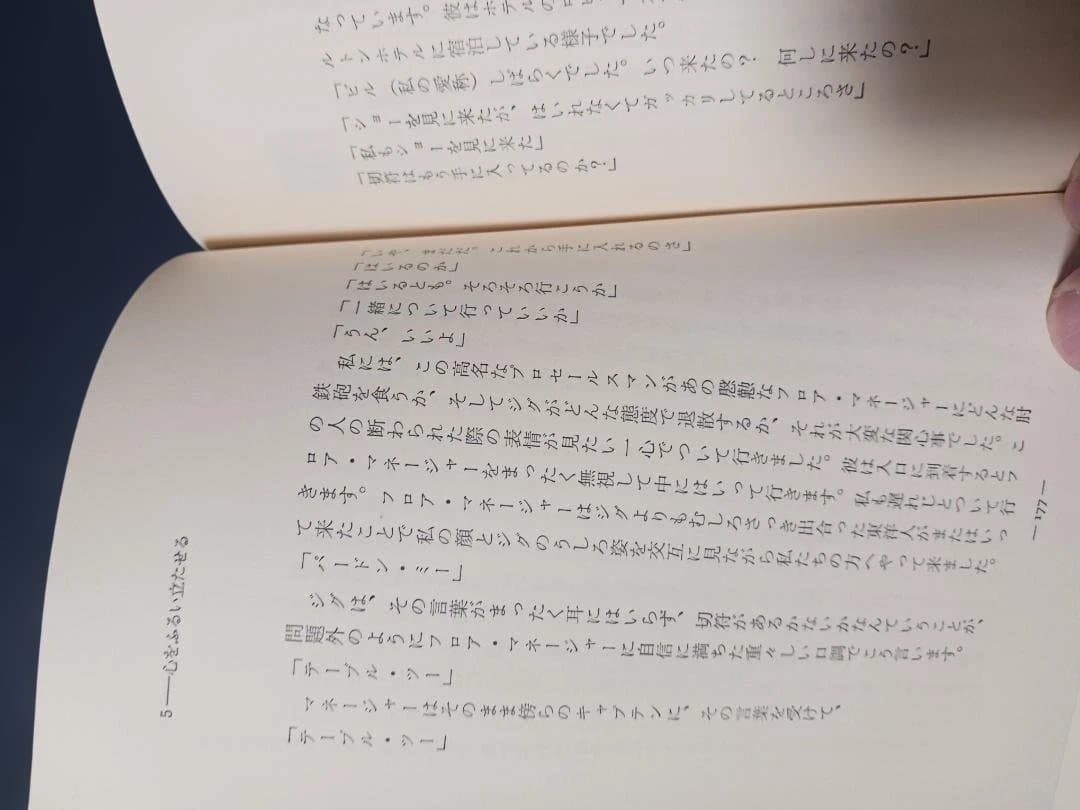 なっています。彼はホテルのロビ
ルトンホテルに宿泊している様子でした。
「ビル（私の愛称）しばらくでした。いつ来たの？　何しに来たの？」
「ショーを見に来たが、はいれなくてガッカリしてるところさ」
「私もショーを見に来た」
「切符はもう手に入ってるのか？」
「いや、まだだ。これから手に入れるのさ」
「はいるのか」
「はいるとも。そろそろ行こうか」
「一緒について行っていいか」
「うん、いいよ」
私には、この高名なプロセールスマンがあの慇懃なフロア・マネージャーにどんな肘
鉄砲を食うか、そしてジグがどんな態度で退散するか、それが大変な関心事でした。こ
の人の断わられた際の表情が見たい一心でついて行きました。彼は入口に到着するとフ
ロア・マネージャーをまったく無視して中にはいって行きます。私も遅れじとついて行
きます。フロア・マネージャーはジグよりもむしろさっき出合った東洋人がまたはいっ
て来たことで私の顔とジグのうしろ姿を交互に見ながら私たちの方へやって来ました。
「パードン・ミー」
ジグは、その言葉がまったく耳にはいらず、切符があるかないかなんていうことが、
問題外のようにフロア・マネージャーに自信に満ちた重々しい口調でこう言います。
「テーブル・ツー」
マネージャーはそのまま傍らのキャプテンに、その言葉を受けて、
「テーブル・ツー」
5——心をふるい立たせる
—177—